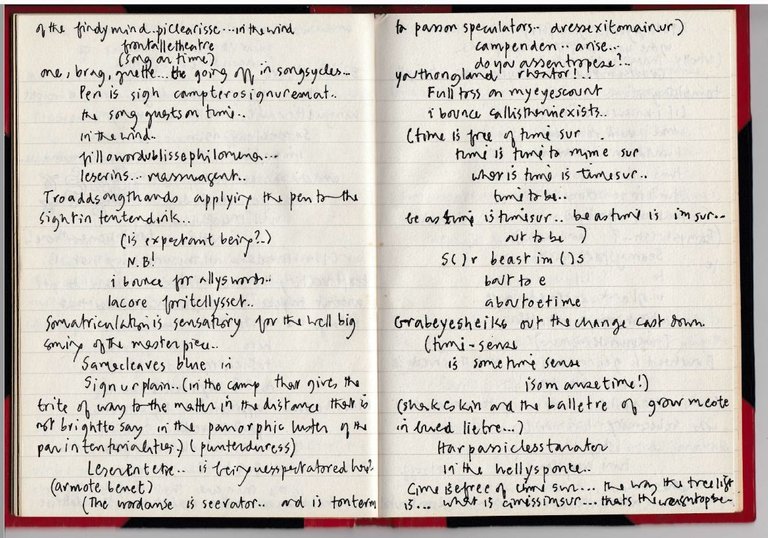 of the findy mind.. piclearisse... in the wind
frontalletheatre
(song on time)
one, brag, gnette... the going off in songsycles...
Pen is sigh campterosignuremat..
the song guests on time..
in the wind..
pillowordublissephilomena...
leserins..
Troaddsongthands applying the pen to the
sight in tentendrink..
(is expectant being?..)
N.B!
i bounce for allyswords..
lacore foritellysset..
Somatriculation is sensatiory for the well big
of the masterpiece..
Samecleaves blue in
Signurplain.. (in the camp that gives the
trite of way to the matter in the distance that is
not bright to say in the pamorphic luster of the
(punterduress)
is being
(armote benet)
(The wordanse is seevator.. and is tonterm
to passon speculators.. dressexitomainur)
campenden.. arise..
do you assentropeze?..
Full toss on my eyescount
i bounce callistheniexists..
(time is free of time sur .
time is time to mime sur
what is time is timesur..
time to be..
be as time is timesur.. be as time is im sur..
out to be )
S()r beast im ()s
bout to e
aboutoetime
Grabeyesheiks out the change cast down
(time-sense
is sometime sense
isomanzetime!)
(sharkskin and the balletre of
in
in the hellysponte..
is... what is cimessimsur... thats the